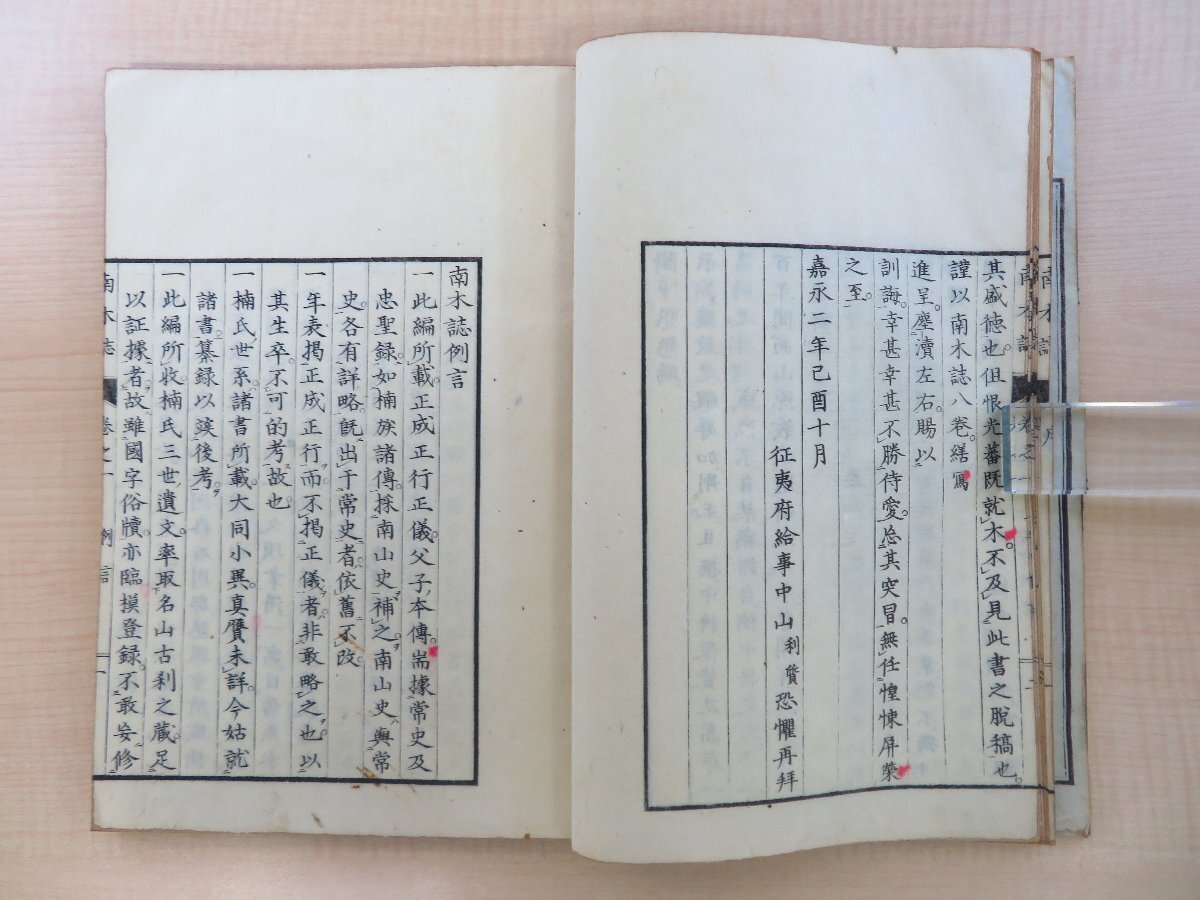 其盛德也但恨先蕃既就木不及見此書之脫稿也
謹以南木誌八卷繕寫
進呈塵瀆左右賜以
訓誨幸甚幸甚不勝侍愛忘其突冒無任惶悚屏營
之至
嘉永二年己酉十月
征夷府給事中山利質恐懼再拜
南木誌例言
一此編所載正成正行正儀父子本傳耑據常史及
忠聖録如楠族諸傳採南山史補之南山史與常
史各有詳略旣出于常史者依舊不改
一年表揭正成正行而不揭正儀者非敢略之也以
其生卒不可的考故也
一楠氏世系諸書所載大同小異真贋未詳今姑就
諸書纂録以竢後考
一此編所收楠氏三世遺文率取名山古刹之藏足
以証據者故雖國字俗牘亦臨摸登録不敢妄修
南木誌 卷之一 例言